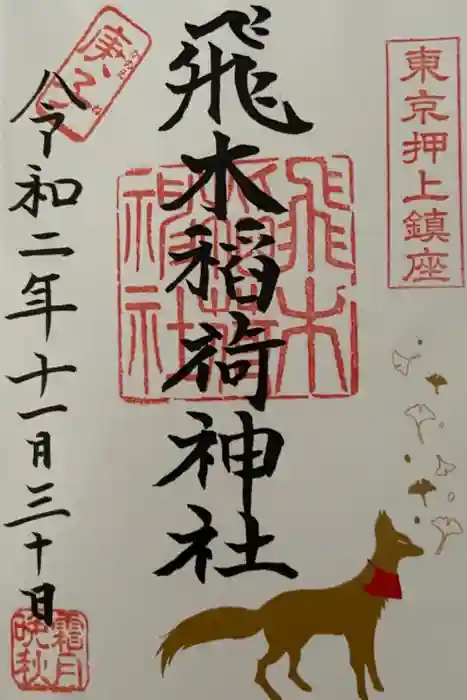 東京押上鎮座
飛木稲荷神社
飛木稲荷神社
令和二年十一月三十日
霜月
晩秋